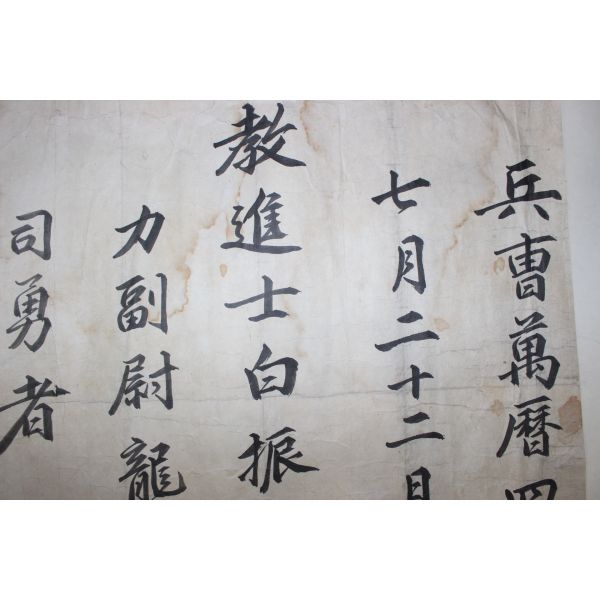 兵曺萬曆四
七月二十二日
敎進士白振
力副尉龍
司勇者